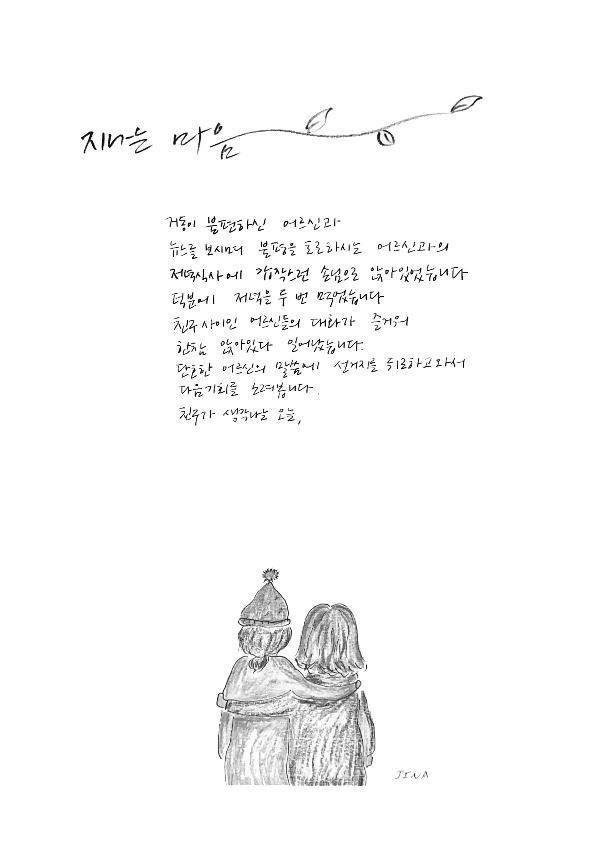 지나는 마음
거동이 불편하신 어르신과
뉴스를 보시며 불평을 토로하시는 어르신과의
저녁식사에 갑작스런 손님으로 앉아있었습니다
덕분에 저녁을 두 번 먹었습니다
친구사이인 어르신들의 대화가 즐거워
한참 앉아있다 일어났습니다.
단호한 어르신의 말씀에 설거지를 뒤로하고 와서
다음기회를 노려봅니다.
친구가 생각나는 오늘,
JINA